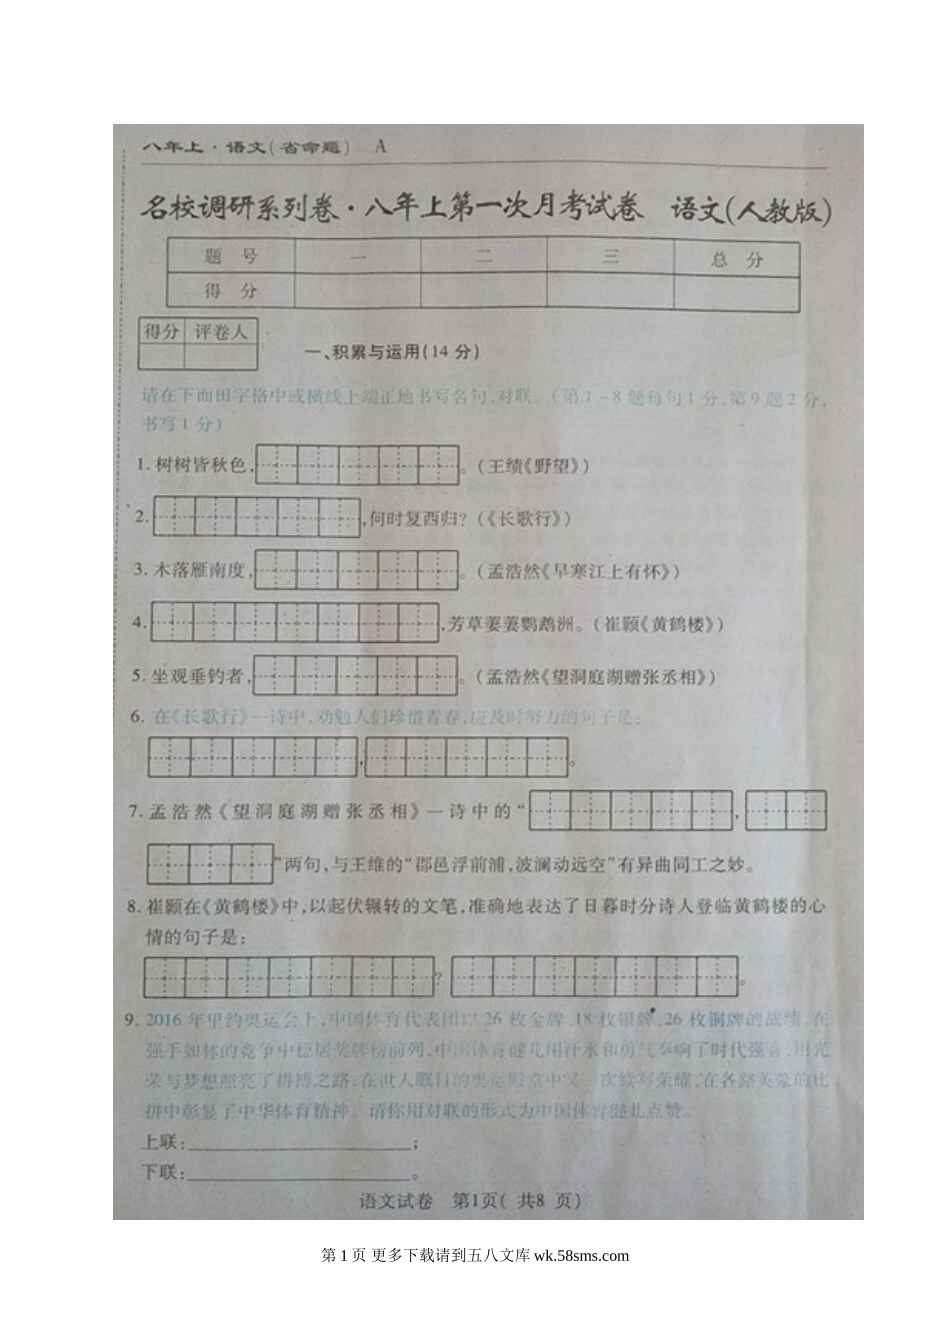 八年上·语文(省命题) A
名校调研系列卷·八年上第一次月考试卷 语文(人教版)
题 号 一 二 三 总 分
得 分
得分 评卷人
一、积累与运用(14分)
请在下面田字格中或横线上端正地书写名句、对联。(第1-8题每句1分,第9题2分,
书写1分)
1. 树树皆秋色, 。(王绩《野望》)
2. ,何时复西归?(《长歌行》)
3. 木落雁南度, 。(孟浩然《早寒江上有怀》)
4. ,芳草萋萋鹦鹉洲。(崔颢《黄鹤楼》)
5. 坐观垂钓者, 。(孟浩然《望洞庭湖赠张丞相》)
6. 在《长歌行》一诗中,劝勉人们珍惜青春,应及时努力的句子是:
, 。
7. 孟浩然《望洞庭湖赠张丞相》一诗中的“ ,
”两句,与王维的“郡邑浮前浦,波澜动远空”有异曲同工之妙。
8. 崔颢在《黄鹤楼》中,以起伏辗转的文笔,准确地表达了日暮时分诗人登临黄鹤楼的心
情的句子是:
? 。
9. 2016年里约奥运会上,中国体育代表团以26枚金牌、18枚银牌、26枚铜牌的战绩,在
强手如林的竞争中稳居奖牌榜前列,中国体育健儿用汗水和勇气奏响了时代强音,用光
荣与梦想照亮了拼搏之路,在世人瞩目的奥运殿堂中又一次续写荣耀,在各路英豪的比
拼中彰显了中华体育精神。请你用对联的形式为中国体育健儿点赞。
上联: ;
下联: 。
语文试卷 第1页( 共8 页)
第 1 页 更多下载请到五八文库 wk.58sms.com